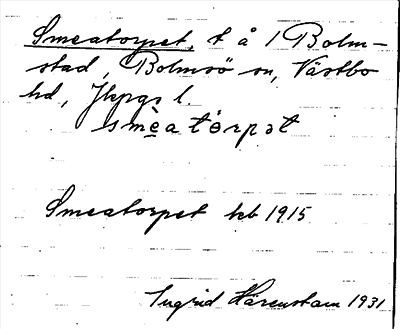 Smeatorpet, t å 1 Bolm-
stad, Bolmsö sn, Västbo
hd, Jkpgs l.
smèa tòrpət
Smeatorpet kb 1915
Ingrid Härenstam 1931